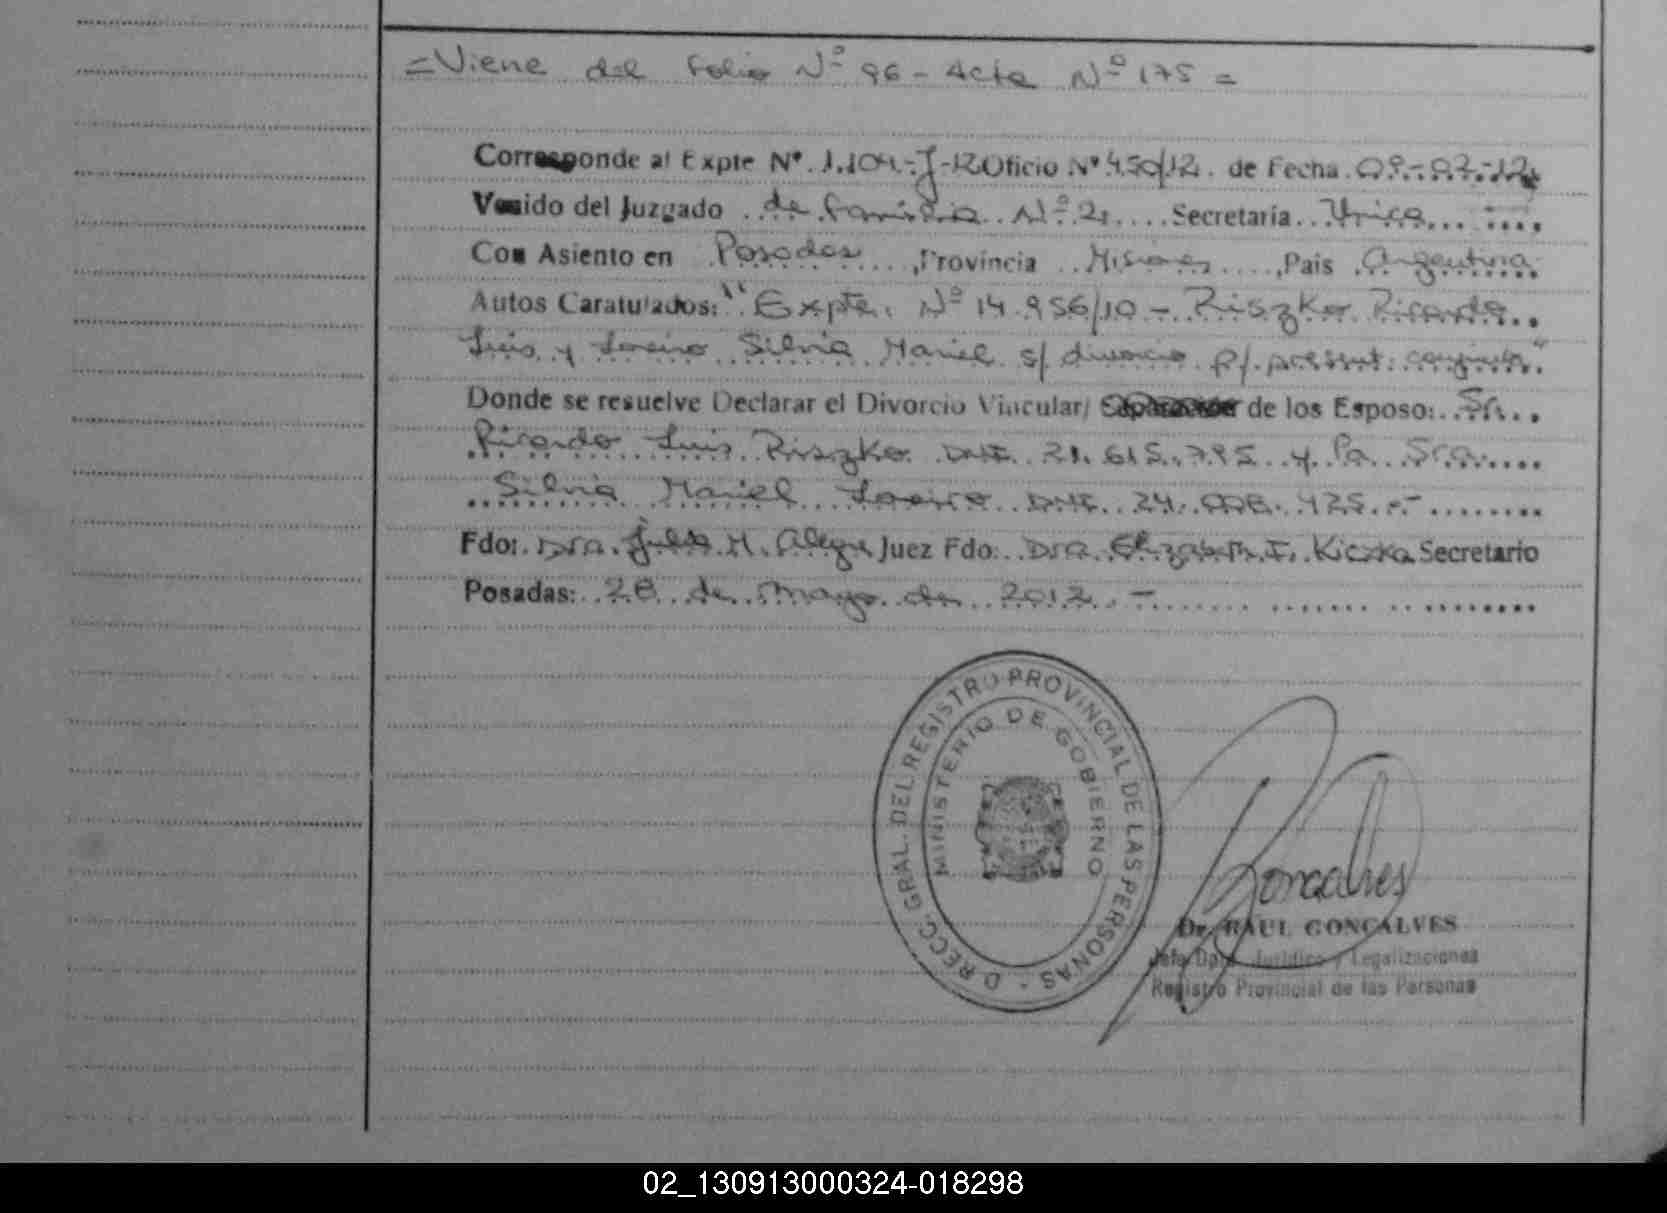 =Viene del folio Nº 96 - Acta Nº 175 =
Corresponde al Expte Nº 1.104-J-12 Oficio Nº 450/12 de Fecha 09-02-12
Venido del Juzgado de familia Nº 2, Secretaría Unica
Con Asiento en Posadas, Provincia Misiones, Pais Argentina
Autos Caratulados: "Expte. Nº 14.956/10 - Riszko Ricardo
Luis y Silvia Mariel s/ divorcio p/ present. conjunta"
Donde se resuelve Declarar el Divorcio Vincular/ de los Esposo: Sr.
Ricardo Luis Riszko DNI. 21.615.795 y la Sra.
Silvia Mariel DNI. 24. 425.-
Fdo: Dra. Julia M. Alegre Juez Fdo: Dra. Elizabeth I. Kiczka Secretario
Posadas: 28 de mayo de 2012.-
DIRECC. GRAL. DEL REGISTRO PROVINCIAL DE LAS PERSONAS -
MINISTERIO DE GOBIERNO
Goncalves
Dr. RAUL GONCALVES
Jefe Dpto. Jurídico y Legalizaciones
Registro Provincial de las Personas
02_130913000324-018298